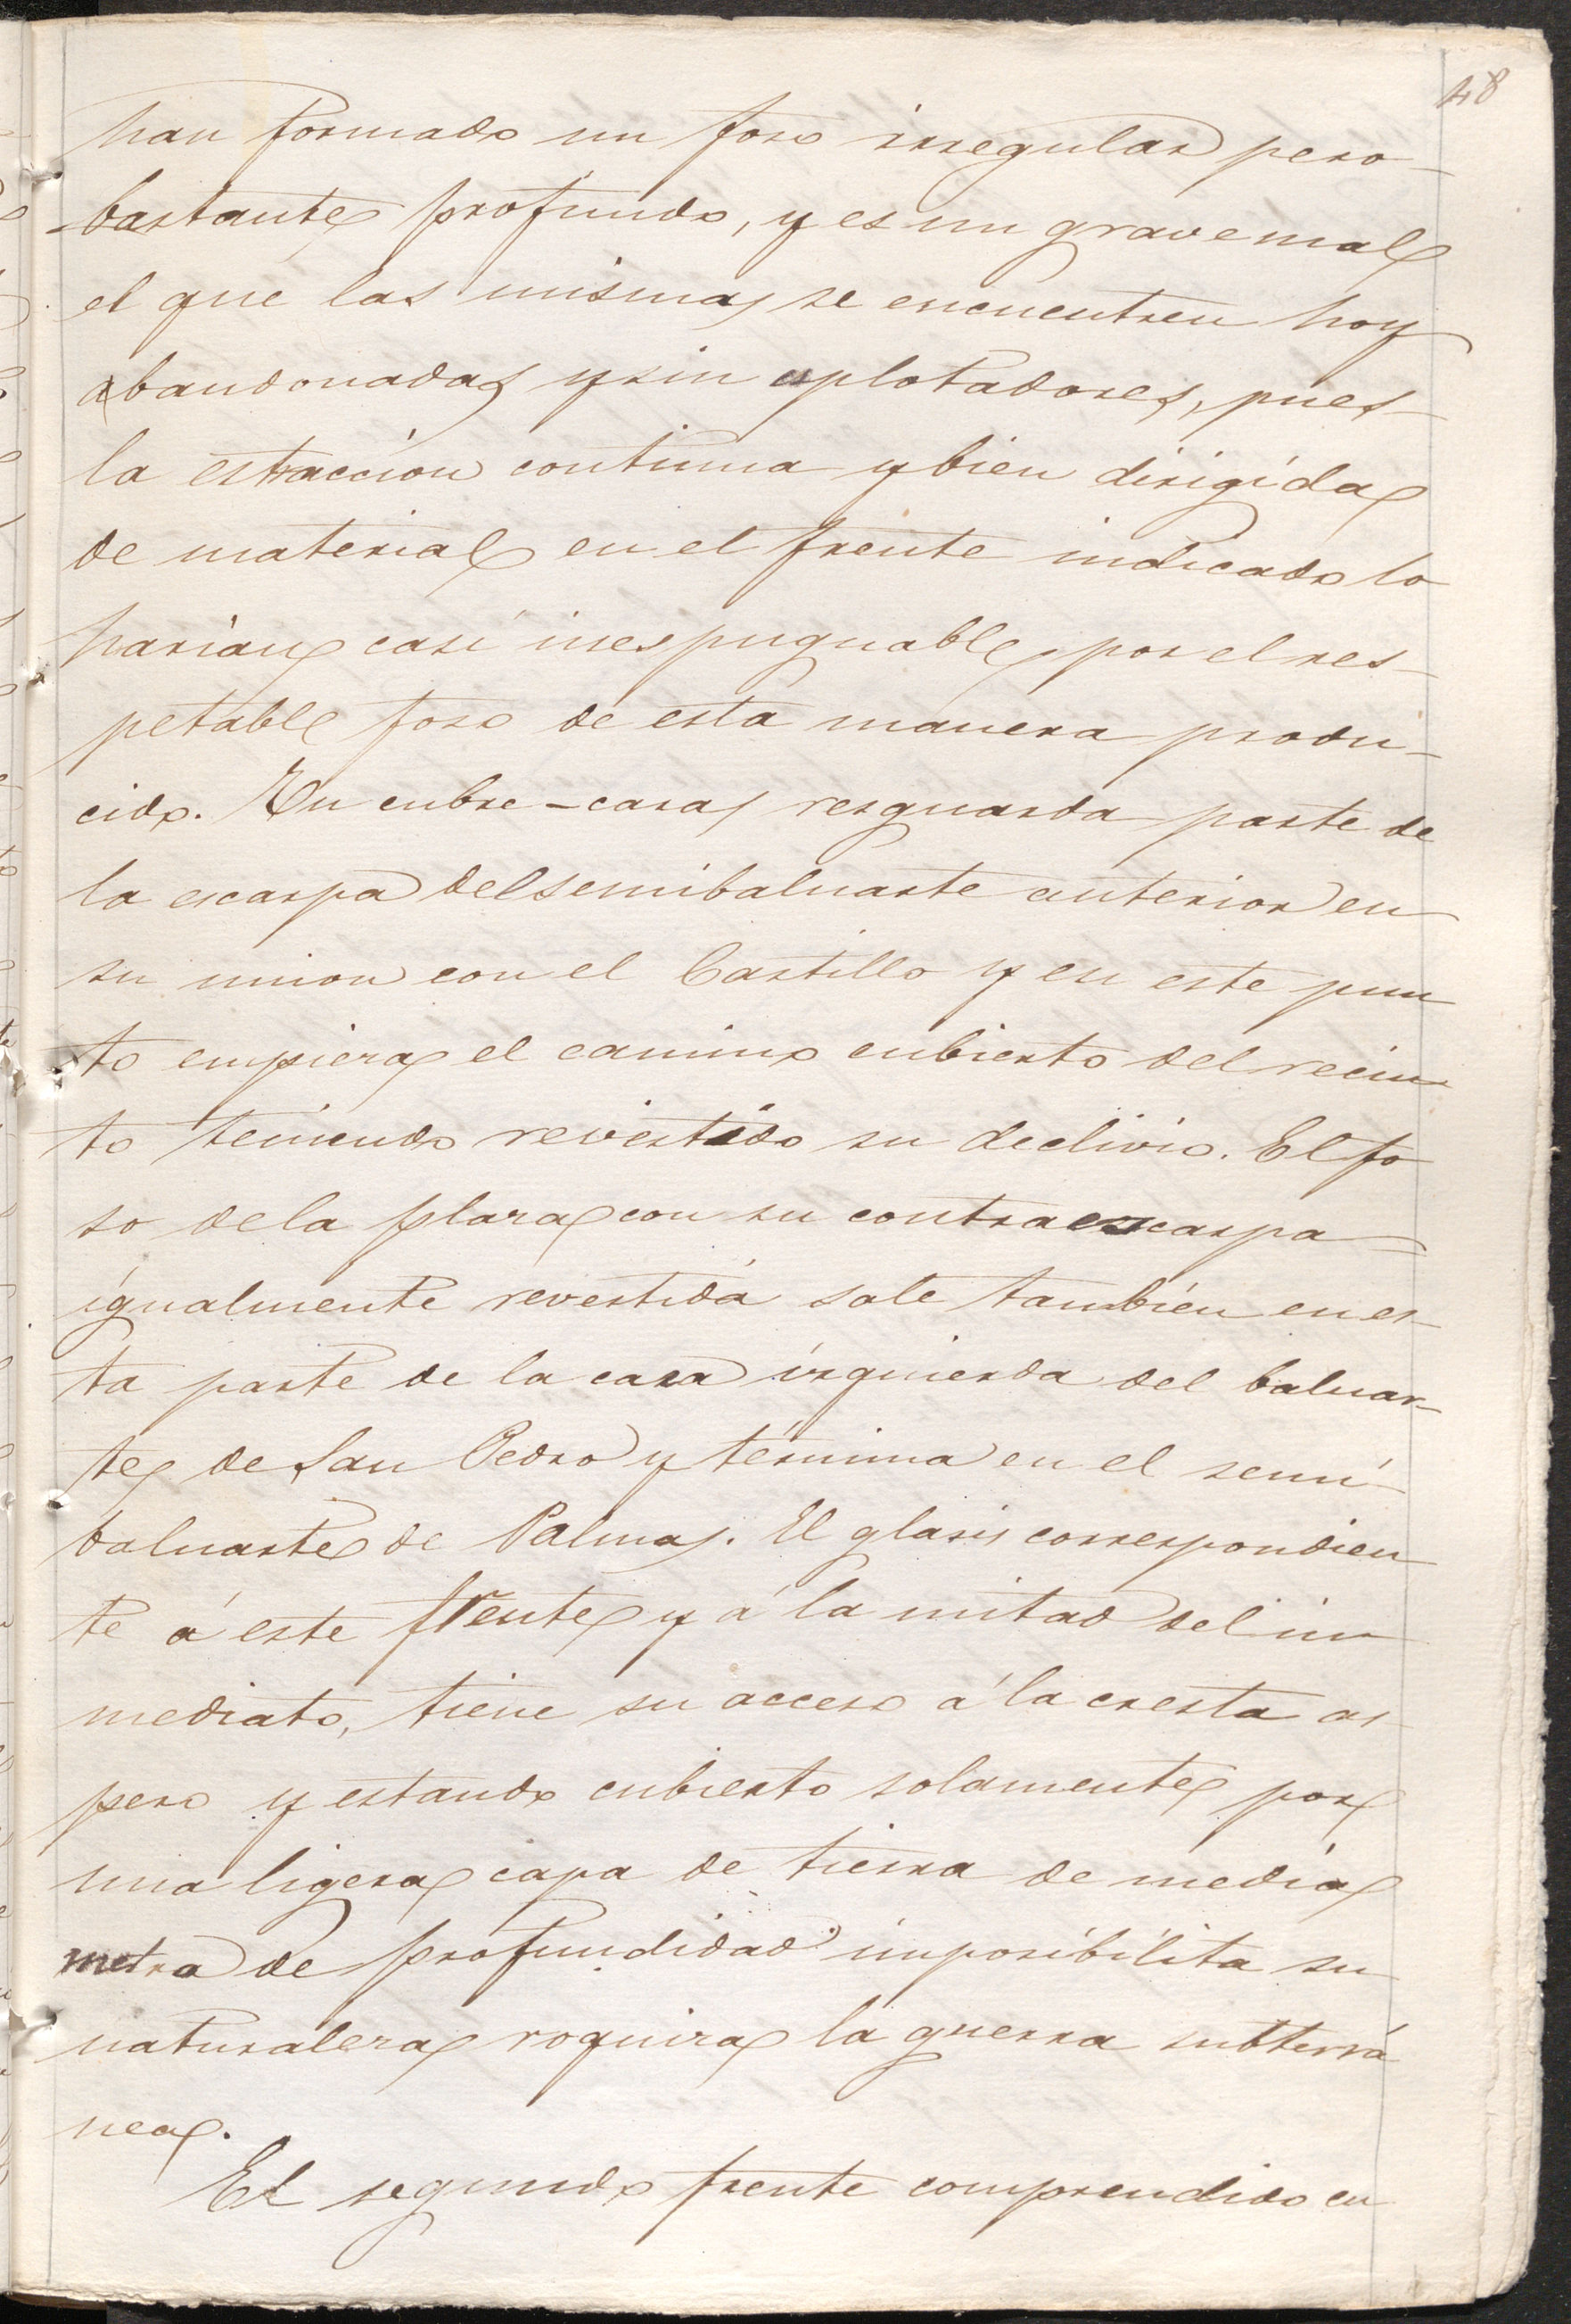 48
han formado un foso irregular pero
bastante profundo, y es un grave mal
el que las mismas se encuentren hoy
abandonadas y sin esplotadores, pues
la estraccion continua y bien dirigida
de material en el frente indicado lo
harian casi inespugnable, por el res-
petable foso de esta manera produ-
cido. Un cubre-caras resguarda parte de
la escarpa del semibaluarte anterior en
su union con el Castillo y en este pun
to empieza el camino cubierto del recin
to teniendo revestido su declivio. El fo
so de la plaza con su contraescarpa
igualmente revestida sale tambien en es-
ta parte de la cara izquierda del baluar-
te de San Pedro y termina en el semi-
baluarte de Palmas. El glasis correspondien
te á este frente y á la mitad del in
mediato, tiene su acceso á la cresta as
pero y estando cubierto solamente por
una ligera capa de tierra de media
metra de profundidad imposibilita su
naturaleza roquiza la guerra subterrá
nea.
El segundo frente comprendido en